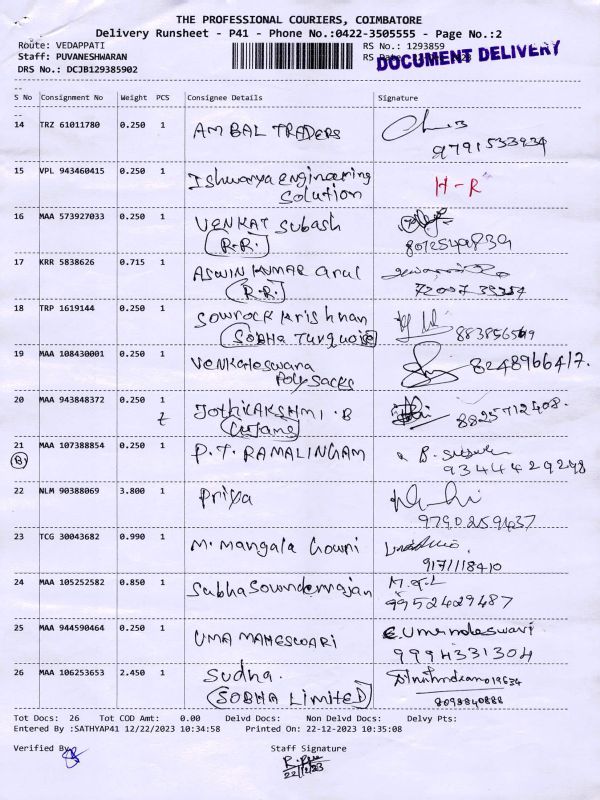 THE PROFESSIONAL COURIERS, COIMBATORE
Delivery Runsheet - P41 - Phone No.:0422-3505555 - Page No.:2
Route: VEDAPPATI RS No.: 1293859
Staff: PUVANESHWARAN RS
DOCUMENT DELIVERY
DRS No.: DCJB129385902
S No Consignment No Weight PCS Consignee Details Signature
14 TRZ 61011780 0.250 1 AMBAL TRADERS
9791533934
15 VPL 943460415 0.250 1 Ishwarya engineering
Solution H-R
16 MAA 573927033 0.250 1 VENKAT Subash
R.R.
17 KRR 5838626 0.715 1 ASWIN KUMAR arul
R.R.
18 TRP 1619144 0.250 1 Sowrock Krishnan
SOBHA Turquoise
19 MAA 108430001 0.250 1 Venkateswara 8248966417.
Poly Sacks
20 MAA 943848372 0.250 1 JothiLAKSHMI .B
8825712408.
21 MAA 107388854 0.250 1 P.T. RAMALINGAM B.
B 9344429298
22 NLM 90388069 3.800 1 Priya
9790259437
23 TCG 30043682 0.990 1 M. Mangala Gowri
9171118410
24 MAA 105252582 0.850 1 Subha Sounderrajan
9952429487
25 MAA 944590464 0.250 1 UMA MAHESWARI
9994331304
26 MAA 106253653 2.450 1 Sudha.
SOBHA LIMITED 8098840888
Tot Docs: 26 Tot COD Amt: 0.00 Delvd Docs: Non Delvd Docs: Delvy Pts:
Entered By :SATHYAP41 12/22/2023 10:34:58 Printed On: 22-12-2023 10:35:08
Verified By Staff Signature
22/12/23